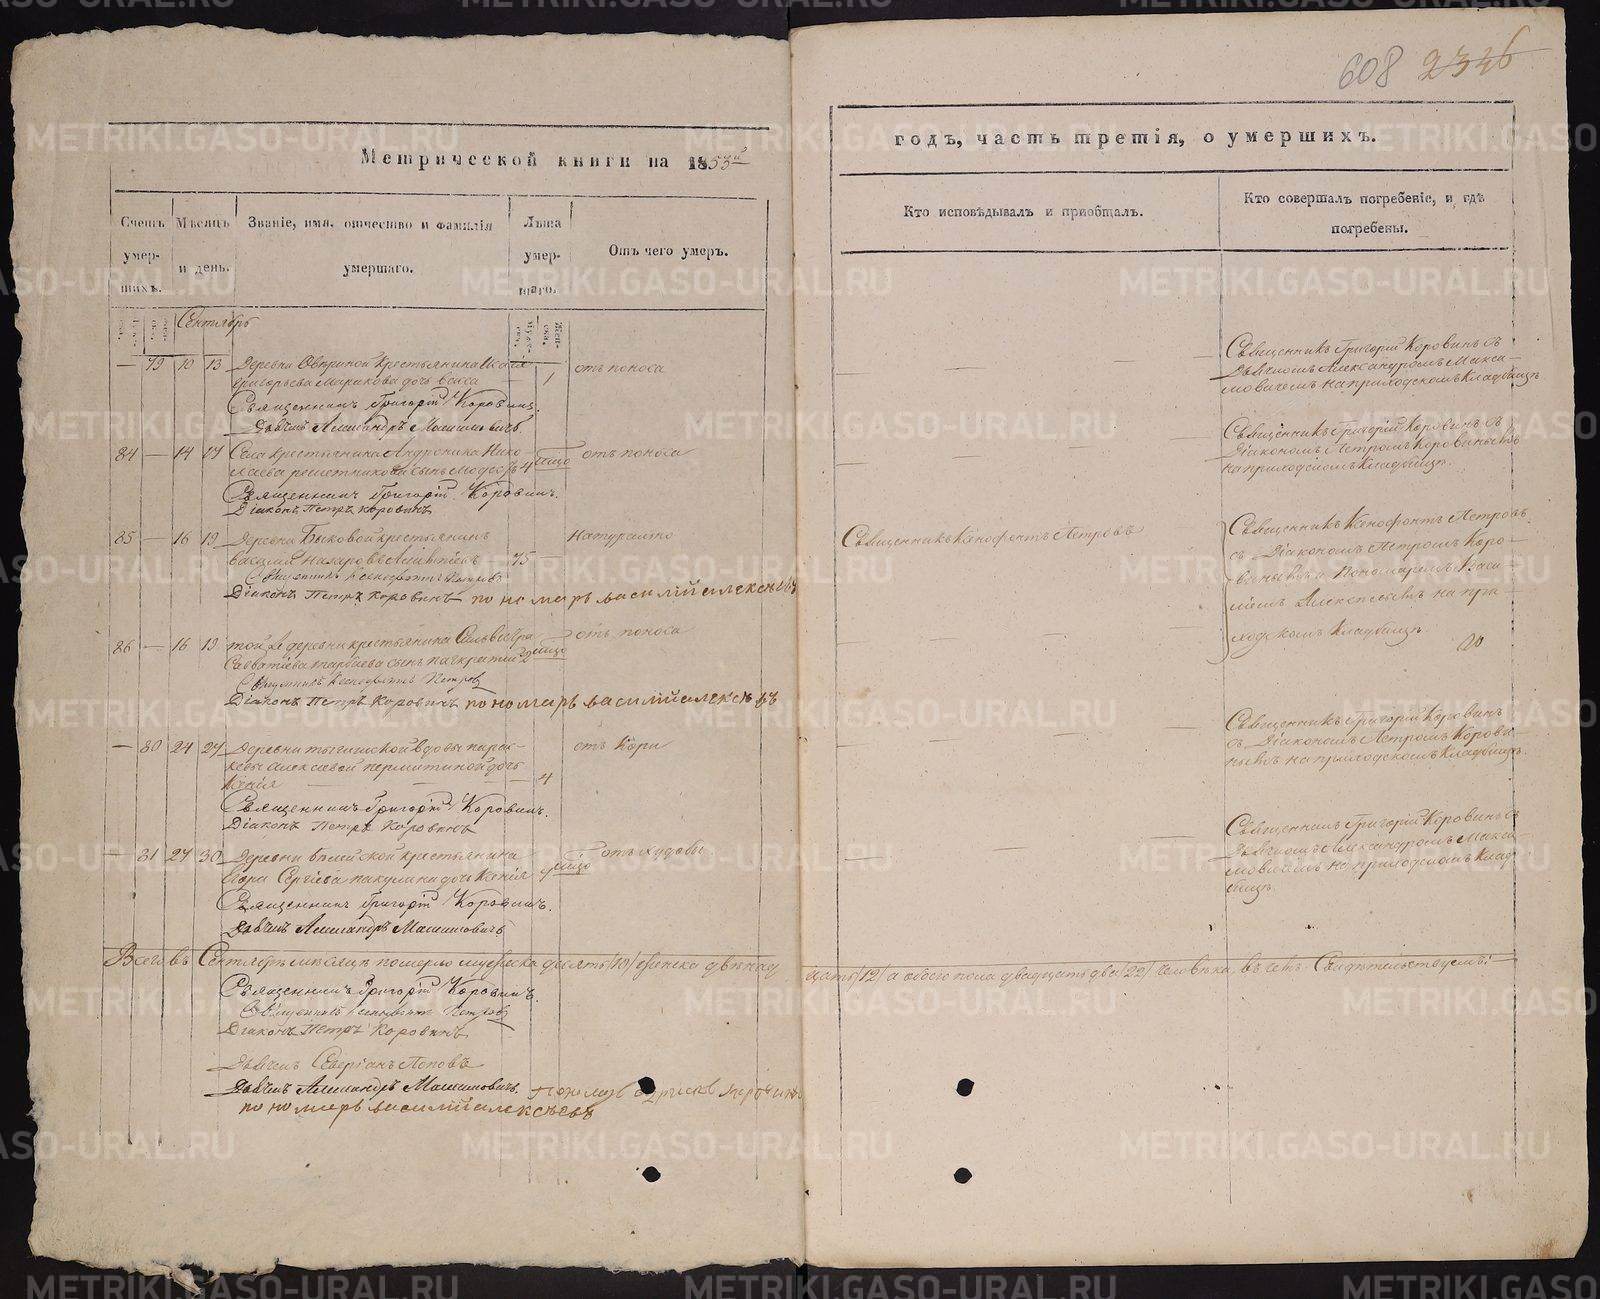 608 2326
Метрической книги на 1853й
годъ, часть третія, о умершихъ.
Счетъ умер-
шихъ.
Мѣсяцъ
и день.
Званіе, имя, отчество и фамилія
умершаго.
Лѣта
умер-
шаго.
Отъ чего умеръ.
Кто исповѣдывалъ и пріобщалъ.
Кто совершалъ погребеніе, и гдѣ
погребены.
Сентябрь
79 10 13 Деревни крестьянина
Григорьева дочь
1 отъ поноса
Священникъ Григорій Коровинъ съ
Дьячкомъ Александромъ Макси-
мовичемъ на приходскомъ кладбищѣ
Священникъ Григорій Коровинъ.
Дьячекъ Александръ Максимовичъ
84 — 14 17 Села крестьянина Андроника Нико-
лаева сынъ
4 отъ поноса
Священникъ Григорій Коровинъ съ
Діакономъ Петромъ Коровинымъ
на приходскомъ кладбищѣ.
Священникъ Григорій Коровинъ.
Діаконъ Петръ Коровинъ
85 — 16 19 Деревни Быковой крестьянинъ
Василій Назаровъ
75 Натурально
Священникъ Ксенофонтъ Петровъ
Священникъ Ксенофонтъ Петровъ
съ Діакономъ Петромъ Коро-
винымъ и Пономаремъ Васи-
ліемъ Алексѣевымъ на при-
ходскомъ кладбищѣ
Священникъ Ксенофонтъ Петровъ
Діаконъ Петръ Коровинъ пономарь василій алексѣевъ
86 — 16 19 той же деревни крестьянина Сильвестра
Савватіева сынъ Панкратій
2 отъ поноса
Священникъ Ксенофонтъ Петровъ
Діаконъ Петръ Коровинъ пономарь василій алексѣевъ
— 80 24 27 Деревни вдовы Парас-
кевы Алексѣевой дочь
Ксенія
4 отъ Кори
Священникъ Григорій Коровинъ
съ Діакономъ Петромъ Корови-
нымъ на приходскомъ кладбищѣ.
Священникъ Григорій Коровинъ.
Діаконъ Петръ Коровинъ
— 81 27 30 Деревни крестьянина
Егора Сергіева дочь Ксенія
отъ худобы
Священникъ Григорій Коровинъ съ
Дьячкомъ Александромъ Макси-
мовичемъ на приходскомъ клад-
бищѣ.
Священникъ Григорій Коровинъ.
Дьячекъ Александръ Максимовичъ
Всего въ Сентябрѣ мѣсяцѣ померло мужеска десять /10/ женска двѣнад
цать /12/ а обоего пола двадцать два /22/ человѣка, въ чемъ Свидѣтельствуемъ:
Священникъ Григорій Коровинъ.
Священникъ Ксенофонтъ Петровъ
Діаконъ Петръ Коровинъ
Дьячекъ Северіанъ Поповъ
Дьячекъ Александръ Максимовичъ.
пономарь василій алексѣевъ
METRIKI.GASO-URAL.RU